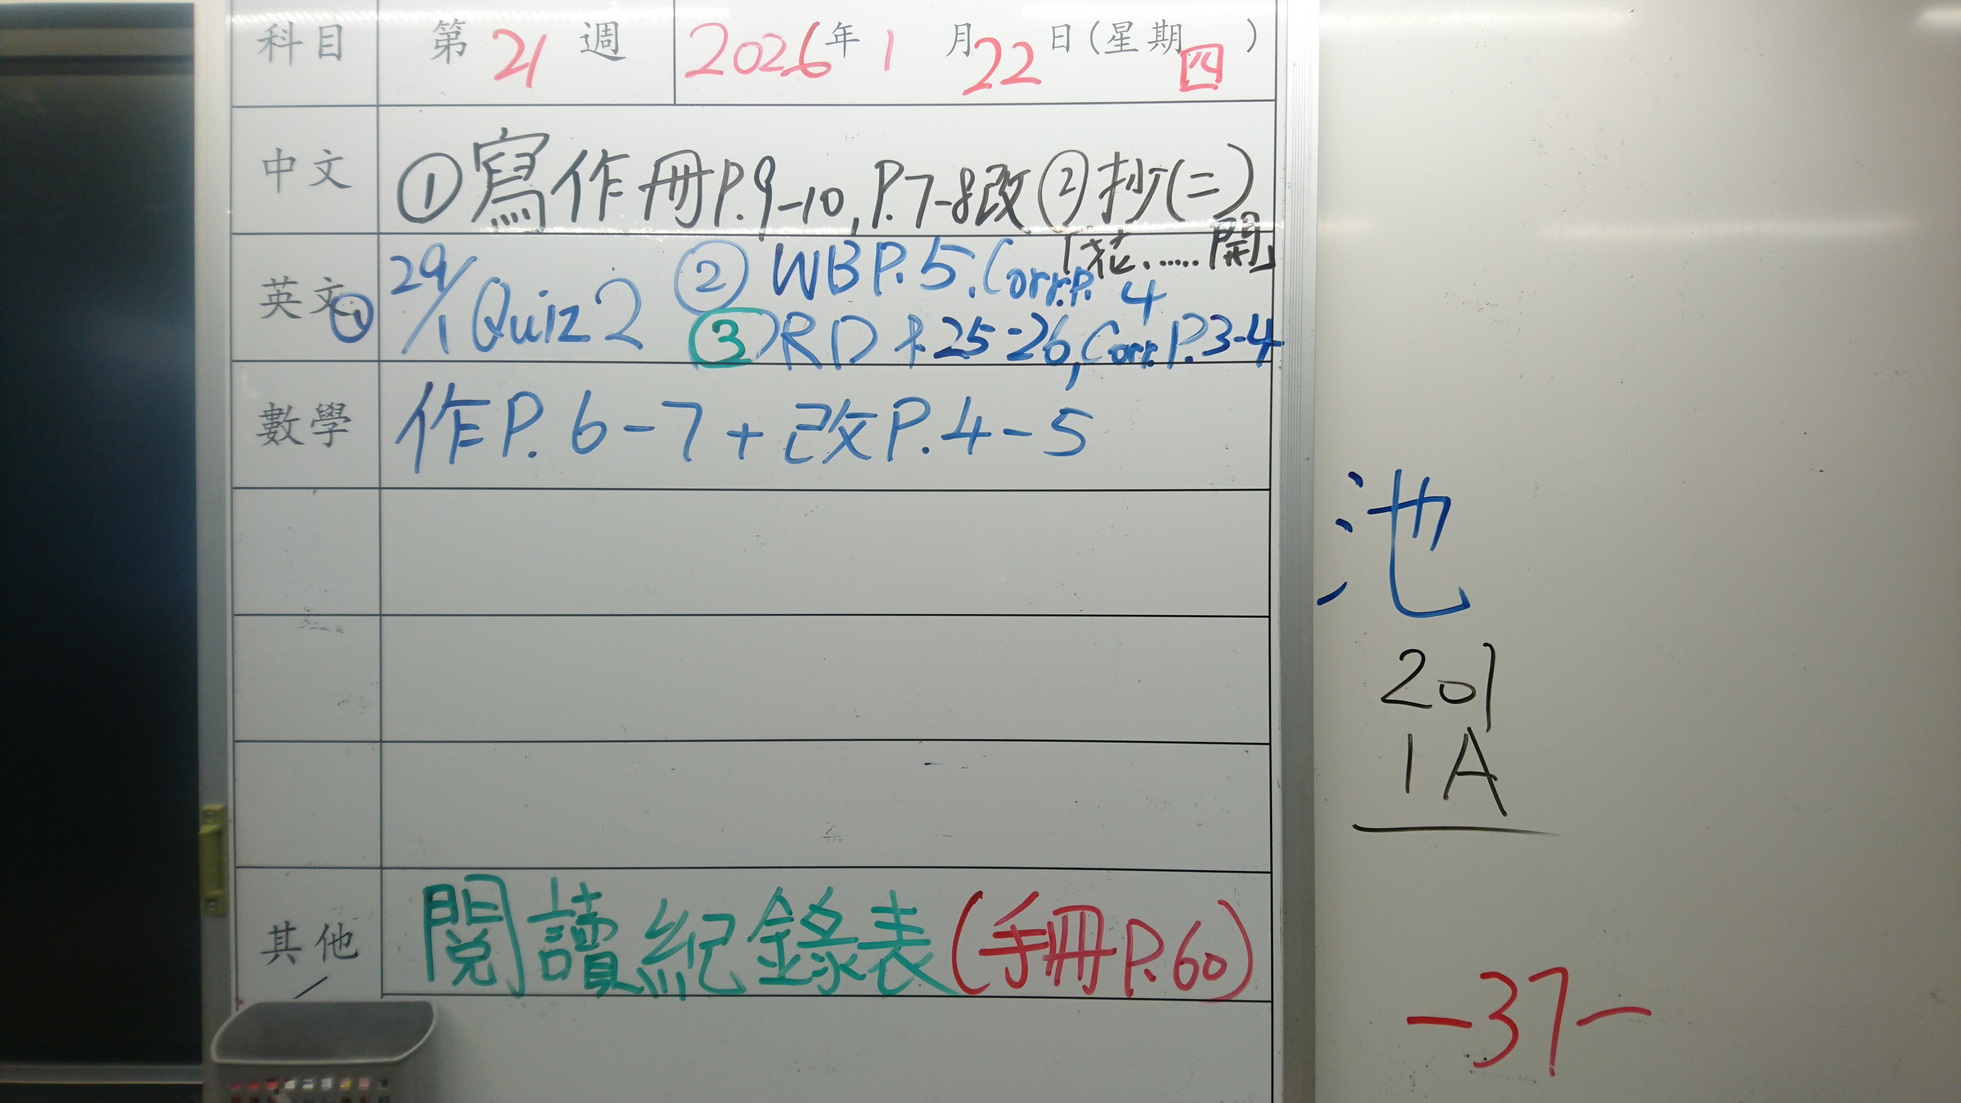 科目 第21週 2026年1月22日(星期四)
中文 ①寫作冊P.9-10, P.7-8改②抄(二)
「花......開」
英文 ① 29/1 Quiz 2 ② WB P.5. Corr.P. 4
③ RD P.25-26, Corr. P.3-4
數學 作P.6-7+改P.4-5
其他 閱讀紀錄表(手冊P.60)
池
201
1A
-37-